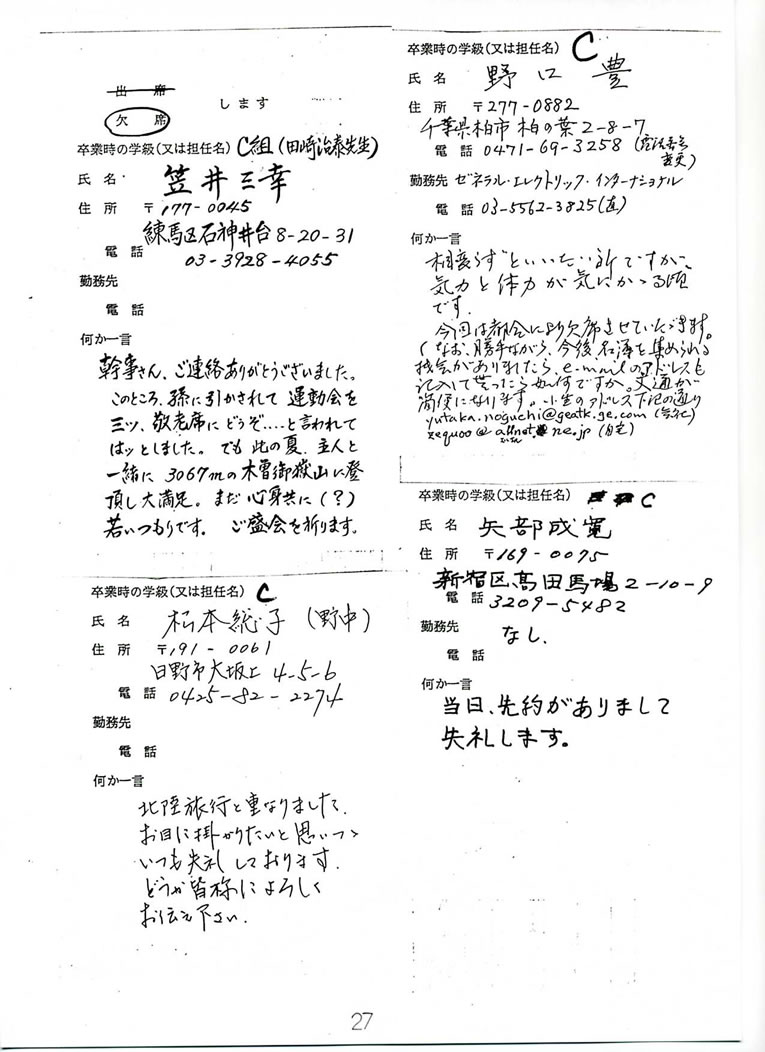 出席
欠席
します
卒業時の学級(又は担任名) C組(田崎治泰先生)
氏名 笠井三幸
住所 〒177-0045
練馬区石神井台8-20-31
電話 03-3928-4055
勤務先
電話
何か一言
幹事さん、ご連絡ありがとうございました。
このところ、孫に引かされて 運動会を
三ツ、敬老席に どうぞ‥‥と言われて
はッとしました。でも 此の夏、主人と
一緒に 3067mの木曽御嶽山に登
頂し大満足。まだ 心身共に(?)
若いつもりです。 ご盛会を祈ります。
卒業時の学級(又は担任名) C
氏名 松本総子(野中)
住所 〒191-0061
日野市大坂上 4-5-6
電話 0425-82-2274
勤務先
電話
何か一言
北陸旅行と重なりました、
お目に掛かりたいと思いつゝ
いつも失礼しております.
どうか皆様によろしく
お伝え下さい.
卒業時の学級(又は担任名) C
氏名 野口 豊
住所 〒277-0882
千葉県柏市柏の葉2-8-7
電話 0471-69-3258 (電話番号変更)
勤務先 ゼネラル・エレクトリック・インターナショナル
電話 03-5562-3825(直)
何か一言
相変らず"といいたい所ですが、
気力と体力が気にかゝる頃
です.
今回は都合により欠席させていただきます。
(なお、勝手ながら、今後名簿を集められる
機会がありましたら、e-mailのアドレスも
記入して貰ったら如何ですか。交通が
簡便になります。小生のアドレス下記の通り
yutaka.noguchi@geatk.ge.com (会社)
zequoo@allnet.ne.jp (自宅)
卒業時の学級(又は担任名) C
氏名 矢部成寛
住所 〒169-0075
新宿区高田馬場2-10-9
電話 3209-5482
勤務先 なし.
電話
何か一言
当日、先約がありまして
失礼します。
27